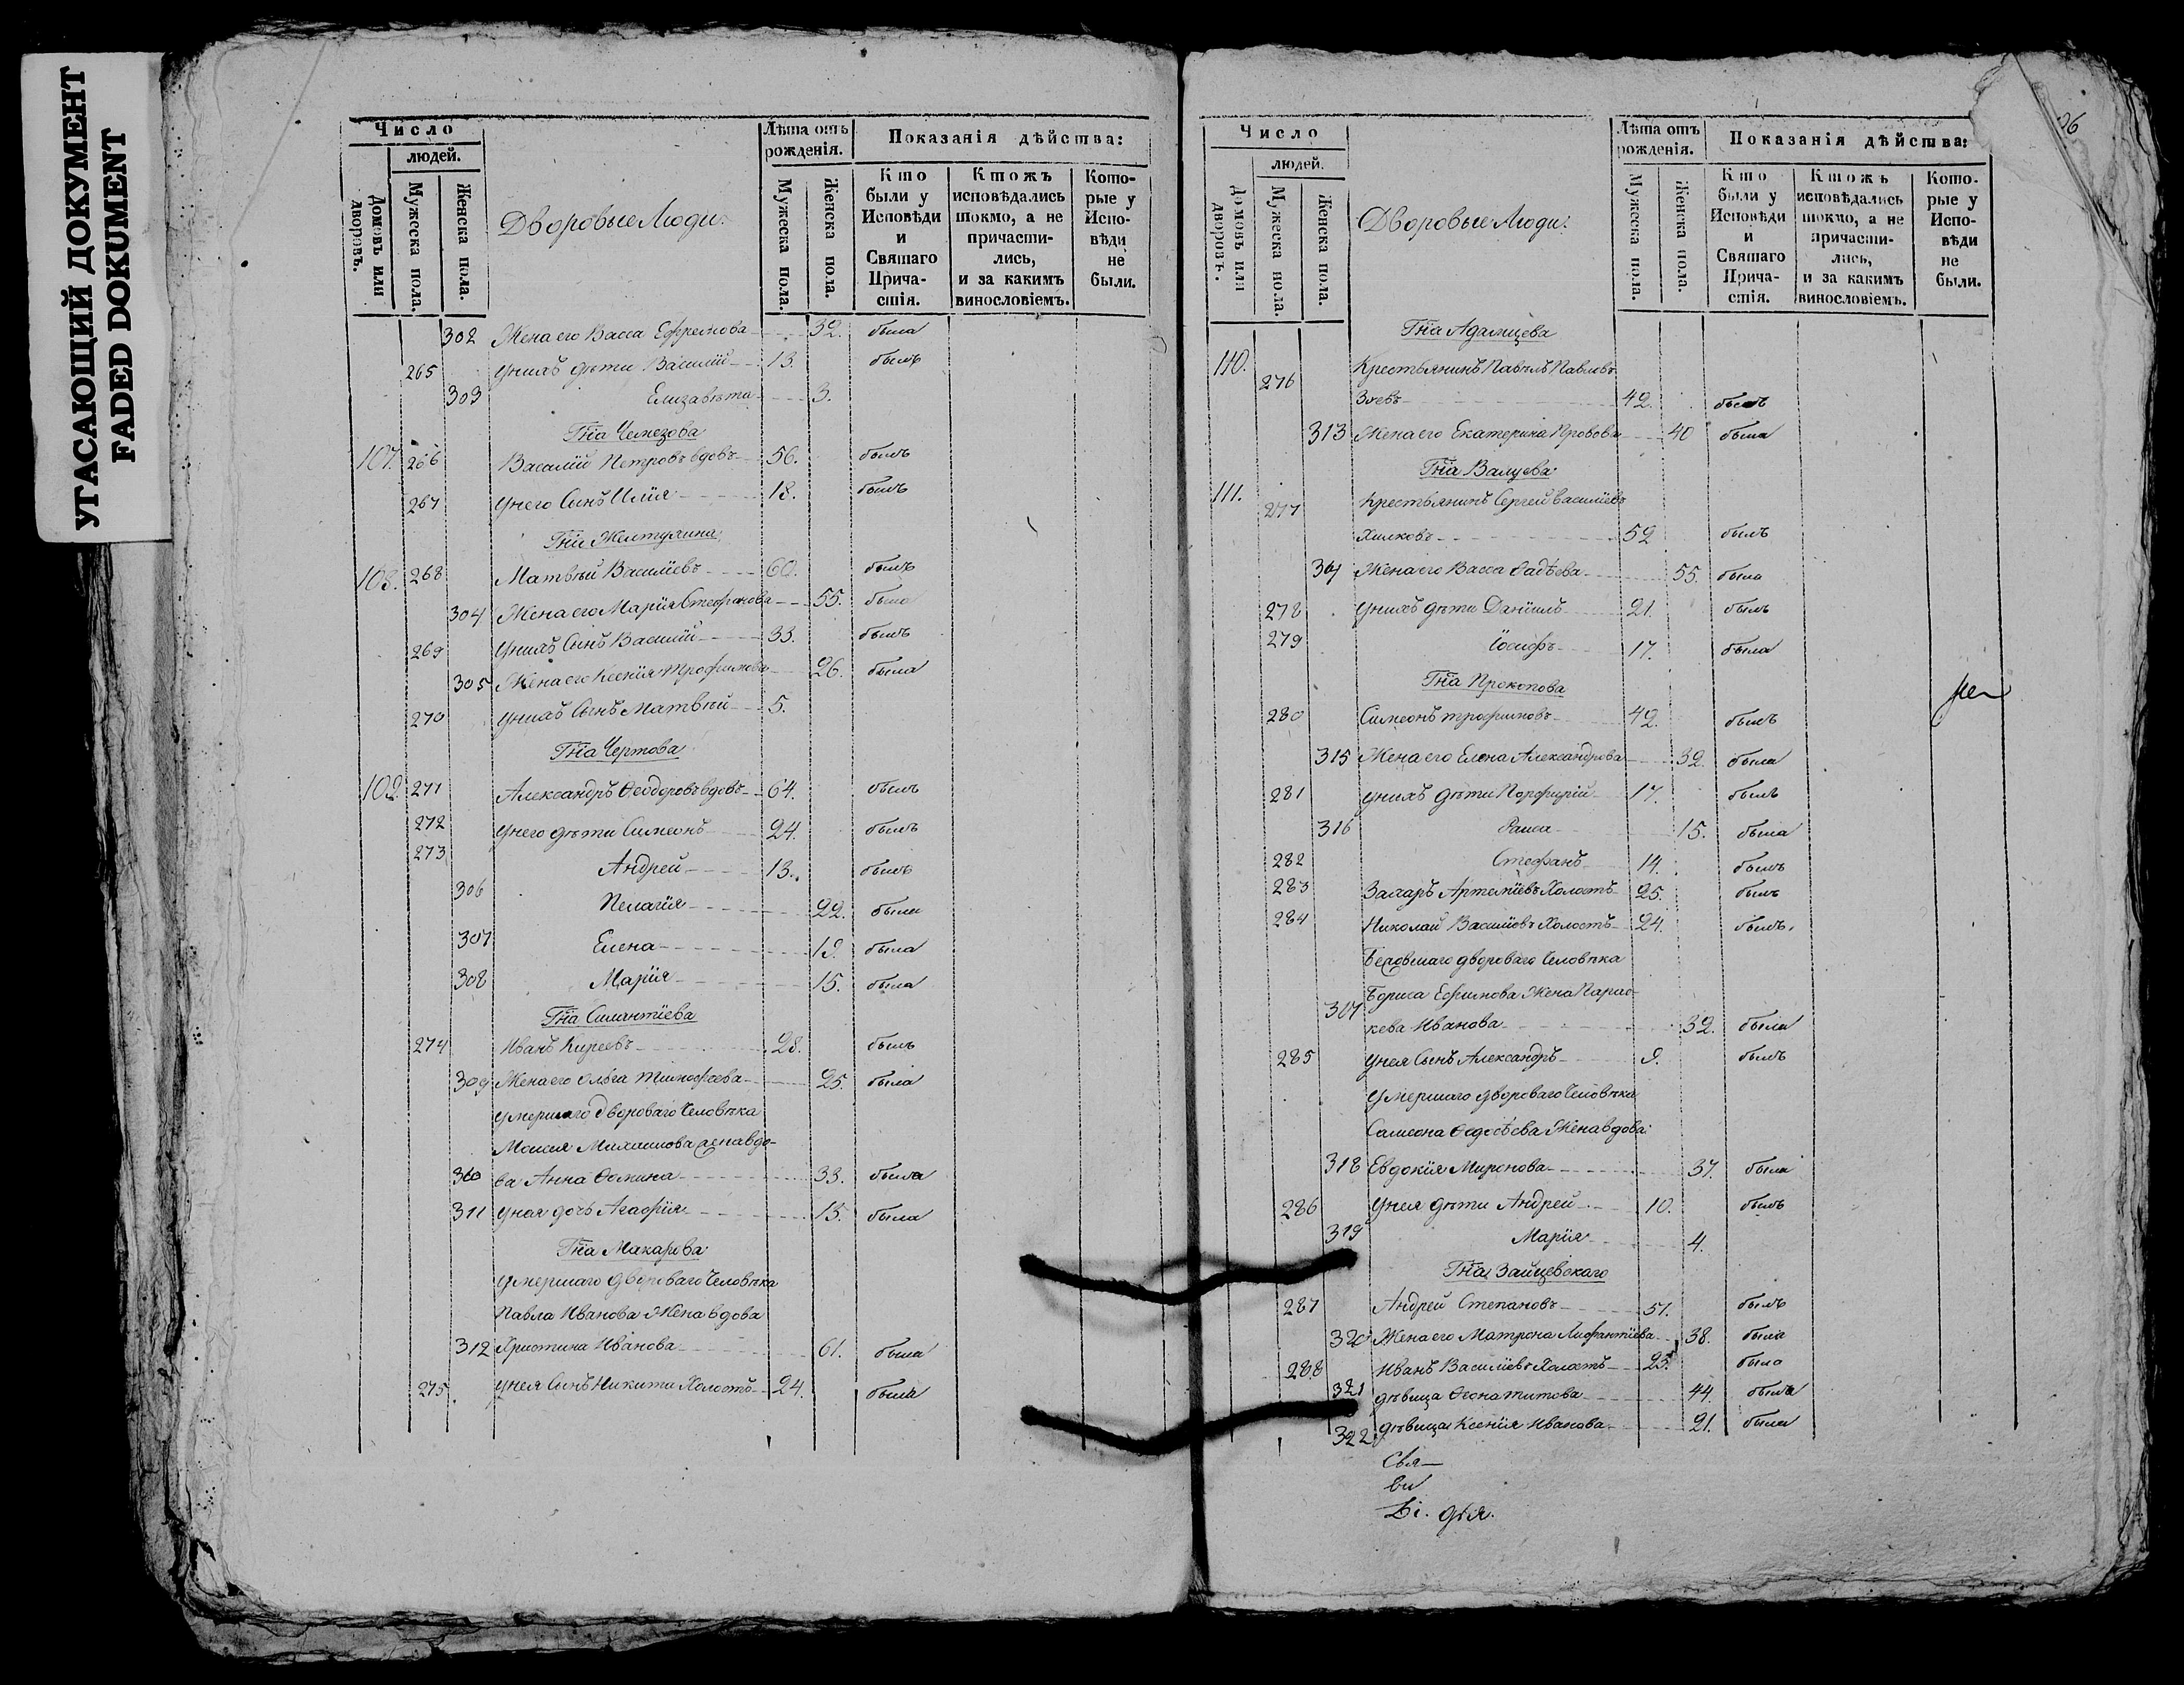 УГАСАЮЩИЙ ДОКУМЕНТ
FADED DOKUMENT
Число
людей.
Домовъ или дворовъ.
Мужеска пола.
Женска пола.
Дворовые Люди:
Лѣта отъ рожденія.
Мужеска пола.
Женска пола.
Показанія дѣйства:
Кто были у Исповѣди и Святаго Прича-стія.
Ктожъ исповѣдались токмо, а не причасти-лись, и за какимъ винословіемъ.
Кото-рые у Испо-вѣди не были.
302 Жена его Васса Ефремова 32. была
265 Унихъ дѣти Василій 13. былъ
303 Елизавѣта 3.
Гна Чемезова
107. 266 Василій Петровъ вдовъ 56. былъ
267 Унего Сынъ Илія 18. былъ
Гни Желтухина
108. 268 Матвѣй Василіевъ 60. былъ
304 Жена его Марія Стефанова 55. была
269 Унихъ Сынъ Василій 33. былъ
305 Жена его Ксенія Трофимова 26. была
270 Унихъ Сынъ Матвѣй 5.
Гна Чертова
109. 271 Александръ Ѳеодоровъ вдовъ 64. былъ
272 Унего дѣти Симеонъ 24. былъ
273 Андрей 13. былъ
306 Пелагія 22. была
307 Елена 19. была
308 Марія 15. была
Гна Силантіева
274 Иванъ Киреевъ 28. былъ
309 Жена его Ольга Тимофеева 25. была
Умершаго Дворового Человѣка
Моисея Михаилова жена вдо-
310 ва Анна Ѳомина 33. была
311 Уная дочь Агафія 15. была
Гна Макарова
Умершаго Дворового Человѣка
Павла Иванова Жена вдова
312 Христина Иванова 61. была
275 Унея Сынъ Никита Холостъ 24. была
26
Число
людей.
Домовъ или дворовъ.
Мужеска пола.
Женска пола.
Дворовые Люди:
Лѣта отъ рожденія.
Мужеска пола.
Женска пола.
Показанія дѣйства:
Кто были у Исповѣди и Святаго Прича-стія.
Ктожъ исповѣдались токмо, а не причасти-лись, и за какимъ винословіемъ.
Кото-рые у Испо-вѣди не были.
Гна Адамцева
110. 276 Крестьянинъ Павелъ Павловъ
Зуевъ 42. былъ
313 Жена его Екатерина Провова 40 была
Гна Валуева
111. 277 Крестьянинъ Сергей Василіевъ
Хилковъ 52 былъ
Жена его Васса Фадѣева 55. была
278 Унихъ дѣти Даніилъ 21. былъ
279 Іосифъ 17. была
Гна Прокопова
280 Симеонъ Трофимовъ 42. былъ
315 Жена его Елена Александрова 32. была
281 Унихъ дѣти Порфирій 17. былъ
316 Раиса 15. была
282 Стефанъ 14. былъ
283 Захаръ Артеміевъ Холостъ 25. былъ
284 Николай Василіевъ Холостъ 24. былъ.
дворового Человѣка
Бориса Ефимова Жена Парас-
317 кева Иванова 32. была
285 Унея Сынъ Александръ 9. былъ
Умершаго дворового Человѣка
Симеона Жена вдова
318 Евдокія Миронова 37. была
286 Унея дѣти Андрей 10. былъ
319 Марія 4.
Гна Зайцевскаго
287 Андрей Степановъ 57. былъ
320 Жена его Матрона 38. была
288 Иванъ Василіевъ Холостъ 25. было
321 дѣвица Титова 44. была
322 дѣвица Ксенія Иванова 21. была
Свя-